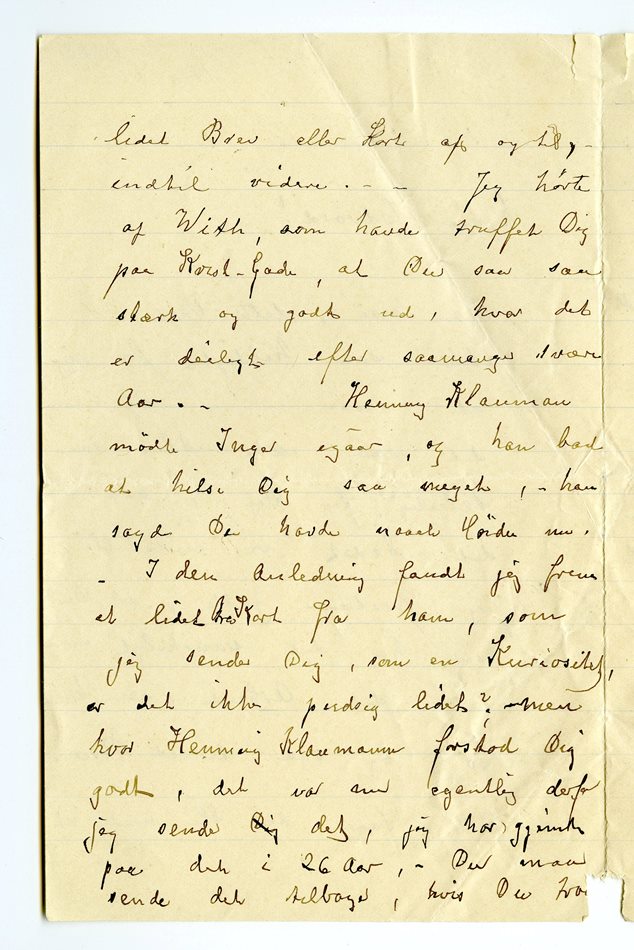 lidet Brev eller Kort af og til, -
indtil videre. - - Jeg hørte
af With, som havde truffet Dig
paa Kvist-Gade, at Du saa saa
stærk og godt ud, hvor det
er deiligt efter saamange svære
Aar. - Henning Klauman
mødte Inger igaar, og han bad
at hilse Dig saa meget, - han
sagde Du havde naaet Høiden nu.
- I den Anledning fandt jeg frem
et lidet Kort fra ham, som
jeg sender Dig, som en Kuriositet,
er det ikke pudsig lidet? - men
hvor Henning Klaumann forstod Dig
godt, det var nu egentlig derfor
jeg sende Dig det, jeg har gjemt
paa det i 26 Aar, - Du maa
sende det tilbage, hvis Du